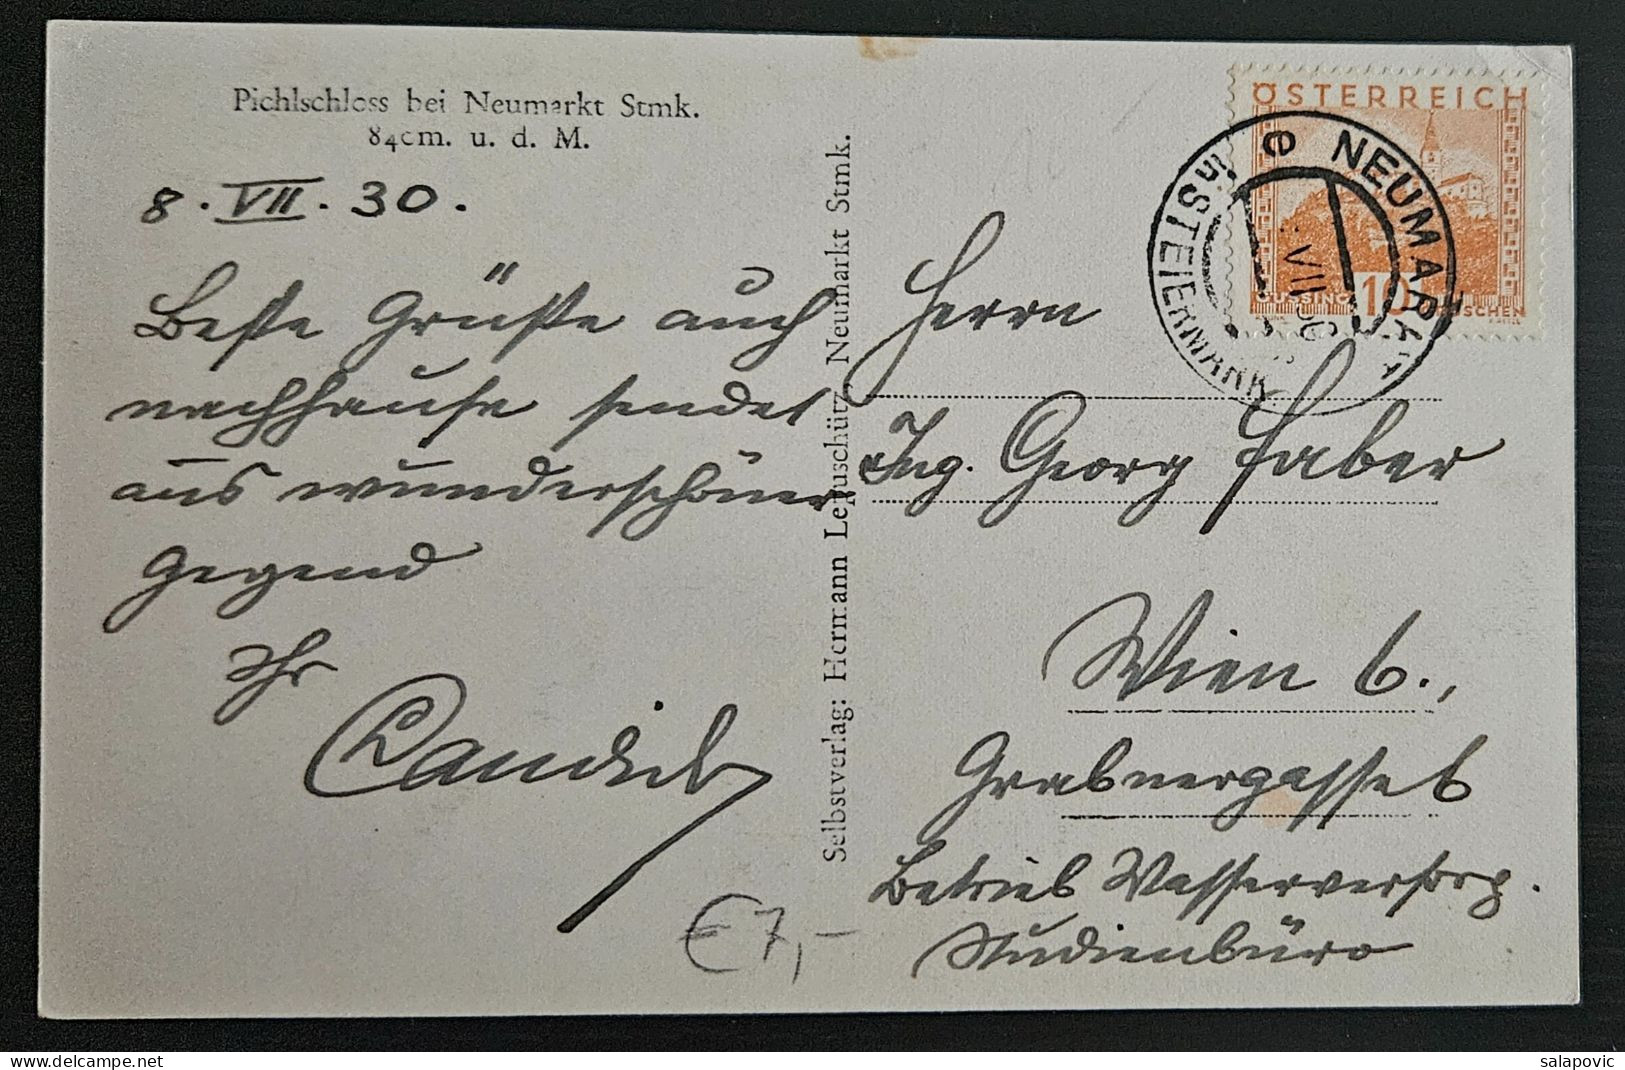 Pichlschloss bei Neumarkt Stmk.
840m. u. d. M.
8. VII. 30.
Beste Grüße auch
nachhause sendet
aus wunderschöner
Gegend
Ihr
Selbstverlag: Hermann Leppuschütz, Neumarkt Stmk.
ÖSTERREICH
GÜSSING 10 GROSCHEN
NEUMARKT
STEIERMARK
Herrn
Ing. Georg Faber
Wien 6.,
Grabnergasse 6
Betrieb Wasserversorg.
Studienbüro
€7,-
salapovic